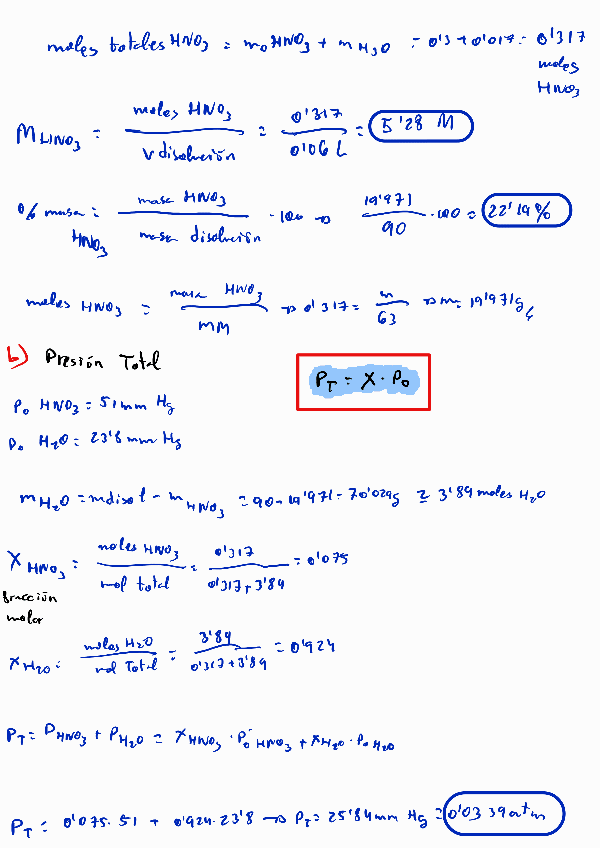 moles totales HNO3 = m0 HNO3 + m H3O = 0'3 + 0'017 = 0'317 moles HNO3
M HNO3 = moles HNO3 / V disolución = 0'317 / 0'06 L = 5'28 M
% masa HNO3 = masa HNO3 / masa disolución · 100 → 19'971 / 90 · 100 = 22'19%
moles HNO3 = masa HNO3 / MM → 0'317 = m / 63 → m = 19'971 g
b) Presión Total
PT = X · P0
P0 HNO3 = 51 mm Hg
P0 H2O = 23'8 mm Hg
m H2O = m disol - m HNO3 = 90 - 19'971 = 70'029g ≅ 3'89 moles H2O
X HNO3 = moles HNO3 / mol total = 0'317 / 0'317 + 3'89 = 0'075
fracción
molar
X H2O = moles H2O / mol Total = 3'89 / 0'317 + 3'89 = 0'924
PT = P HNO3 + P H2O = X HNO3 · P0 HNO3 + X H2O · P0 H2O
PT = 0'075 · 51 + 0'924 · 23'8 → PT = 25'84 mm Hg = 0'0339 atm